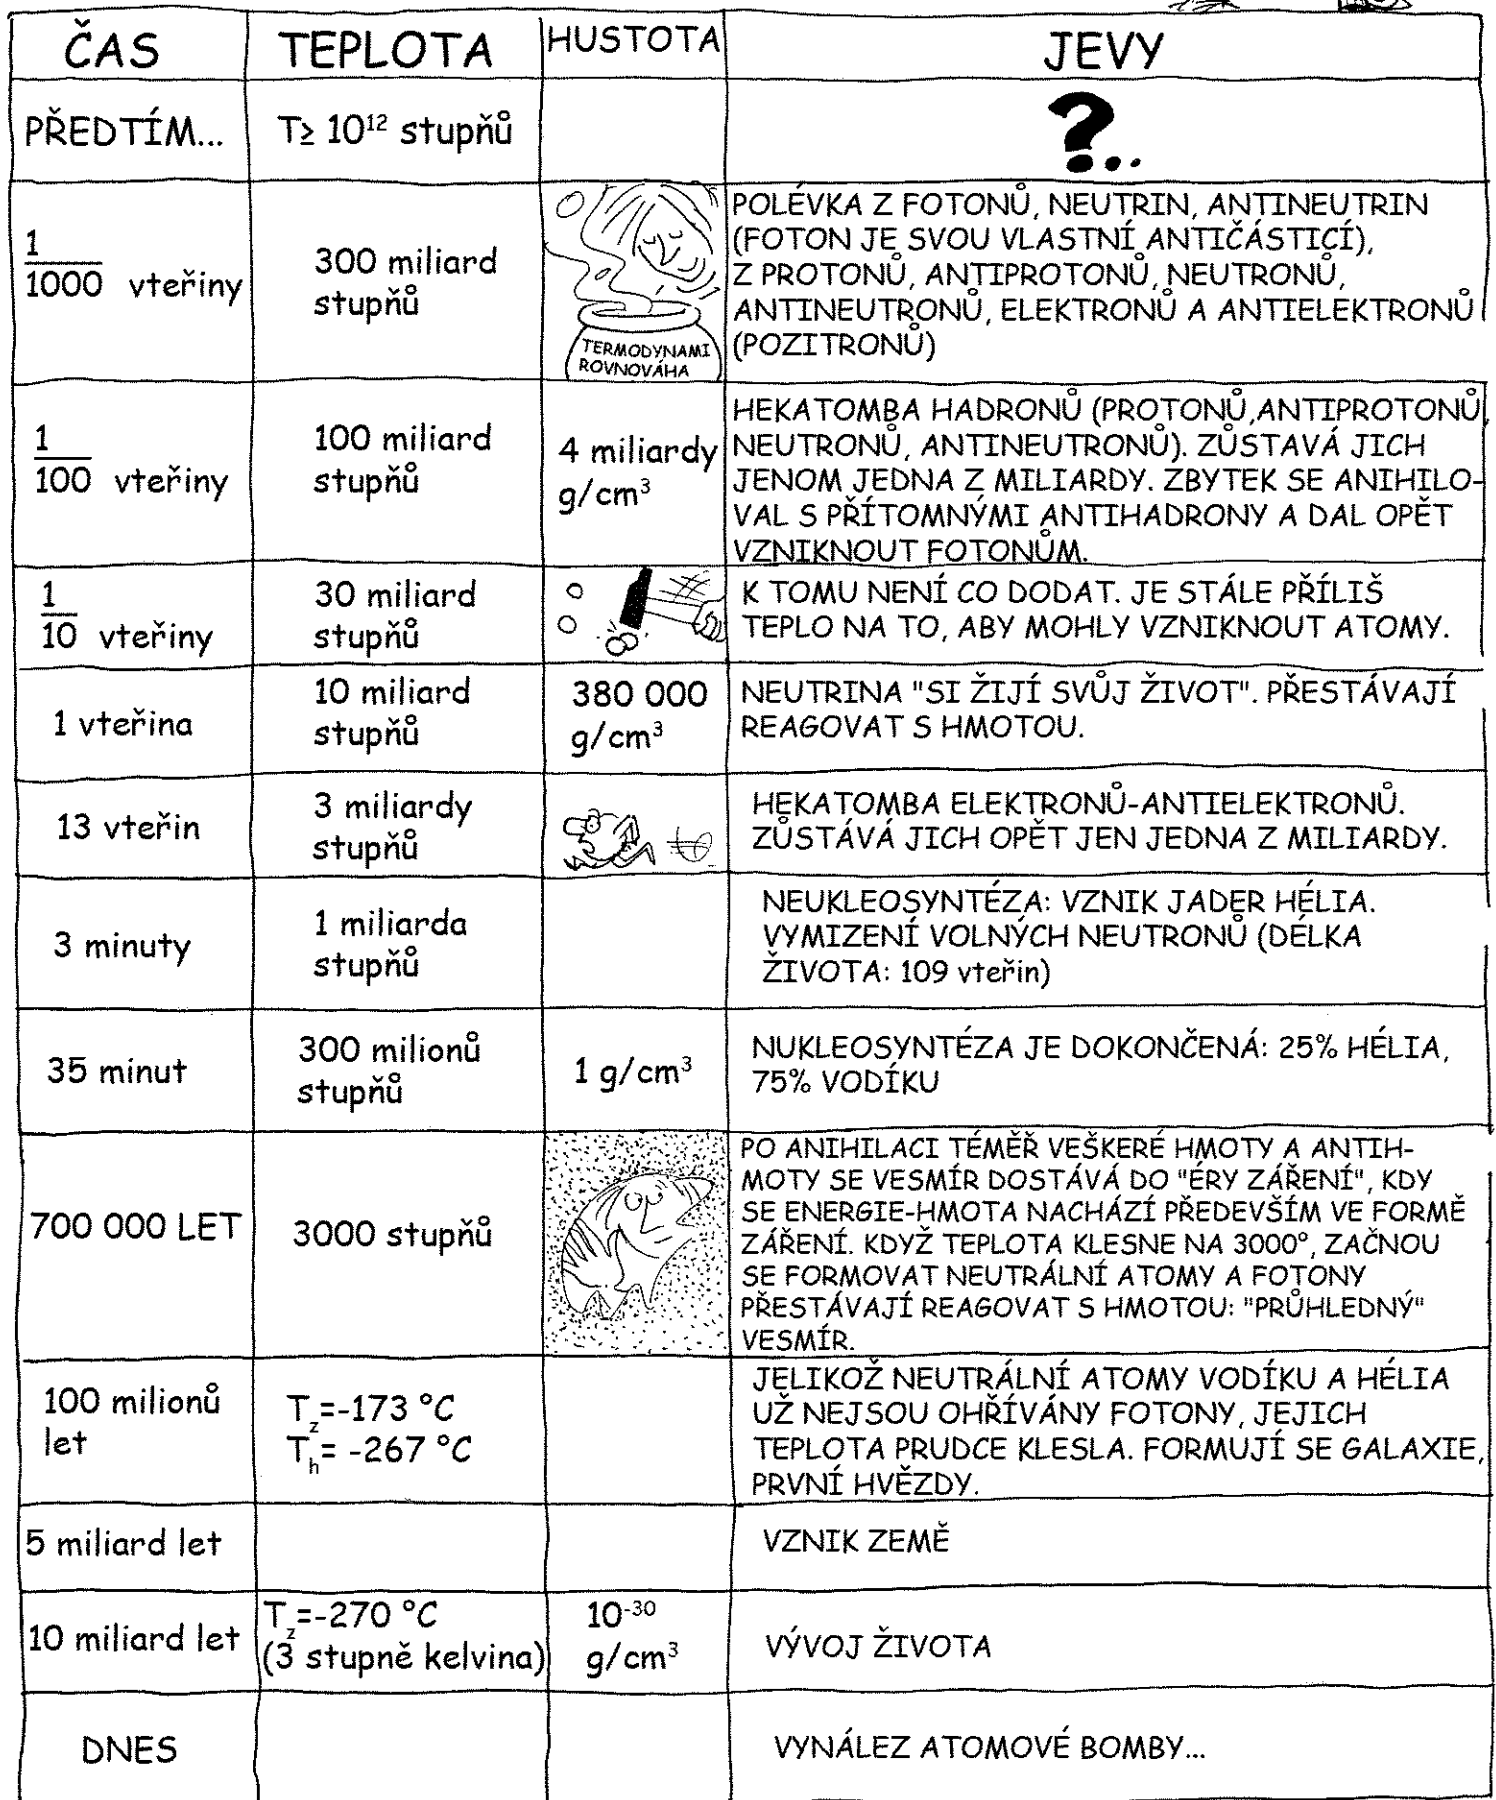 ČAS TEPLOTA HUSTOTA JEVY
PŘEDTÍM... T≥ 10¹² stupňů ?..
1/1000 vteřiny
300 miliard
stupňů
TERMODYNAMI
ROVNOVÁHA
POLÉVKA Z FOTONŮ, NEUTRIN, ANTINEUTRIN
(FOTON JE SVOU VLASTNÍ ANTIČÁSTICÍ),
Z PROTONŮ, ANTIPROTONŮ, NEUTRONŮ,
ANTINEUTRONŮ, ELEKTRONŮ A ANTIELEKTRONŮ
(POZITRONŮ)
1/100 vteřiny
100 miliard
stupňů
4 miliardy
g/cm³
HEKATOMBA HADRONŮ (PROTONŮ,ANTIPROTONŮ,
NEUTRONŮ, ANTINEUTRONŮ). ZŮSTAVÁ JICH
JENOM JEDNA Z MILIARDY. ZBYTEK SE ANIHILO-
VAL S PŘÍTOMNÝMI ANTIHADRONY A DAL OPĚT
VZNIKNOUT FOTONŮM.
1/10 vteřiny
30 miliard
stupňů
K TOMU NENÍ CO DODAT. JE STÁLE PŘÍLIŠ
TEPLO NA TO, ABY MOHLY VZNIKNOUT ATOMY.
1 vteřina
10 miliard
stupňů
380 000
g/cm³
NEUTRINA "SI ŽIJÍ SVŮJ ŽIVOT". PŘESTÁVAJÍ
REAGOVAT S HMOTOU.
13 vteřin
3 miliardy
stupňů
HEKATOMBA ELEKTRONŮ-ANTIELEKTRONŮ.
ZŮSTÁVÁ JICH OPĚT JEN JEDNA Z MILIARDY.
3 minuty
1 miliarda
stupňů
NEUKLEOSYNTÉZA: VZNIK JADER HÉLIA.
VYMIZENÍ VOLNÝCH NEUTRONŮ (DÉLKA
ŽIVOTA: 109 vteřin)
35 minut
300 milionů
stupňů
1 g/cm³
NUKLEOSYNTÉZA JE DOKONČENÁ: 25% HÉLIA,
75% VODÍKU
700 000 LET
3000 stupňů
PO ANIHILACI TÉMĚŘ VEŠKERÉ HMOTY A ANTIH-
MOTY SE VESMÍR DOSTÁVÁ DO "ÉRY ZÁŘENÍ", KDY
SE ENERGIE-HMOTA NACHÁZÍ PŘEDEVŠÍM VE FORMĚ
ZÁŘENÍ. KDYŽ TEPLOTA KLESNE NA 3000°, ZAČNOU
SE FORMOVAT NEUTRÁLNÍ ATOMY A FOTONY
PŘESTÁVAJÍ REAGOVAT S HMOTOU: "PRŮHLEDNÝ"
VESMÍR.
100 milionů
let
T_z=-173 °C
T_h= -267 °C
JELIKOŽ NEUTRÁLNÍ ATOMY VODÍKU A HÉLIA
UŽ NEJSOU OHŘÍVÁNY FOTONY, JEJICH
TEPLOTA PRUDCE KLESLA. FORMUJÍ SE GALAXIE,
PRVNÍ HVĚZDY.
5 miliard let
VZNIK ZEMĚ
10 miliard let
T_z=-270 °C
(3 stupně kelvina)
10⁻³⁰
g/cm³
VÝVOJ ŽIVOTA
DNES
VYNÁLEZ ATOMOVÉ BOMBY...